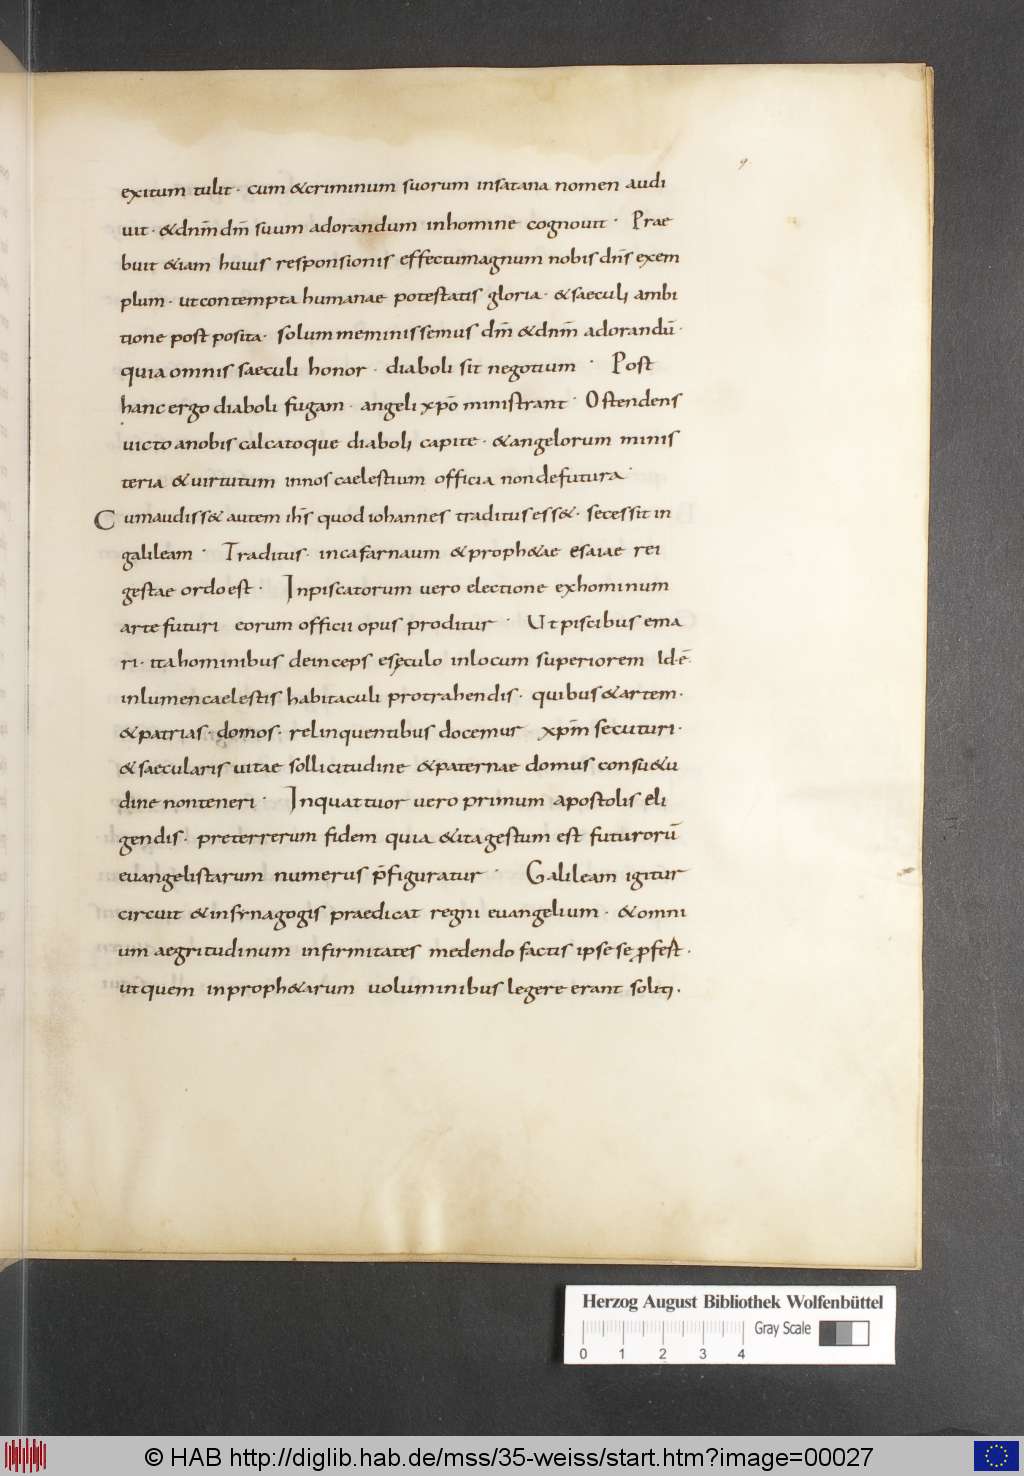 9.
exitum tulit · cum & criminum suorum insatana nomen audi
uit · & dnm̄ dm̄ suum adorandum inhomine cognouit · Prae
buit &iam huius responsionis effectumagnum nobis dn̄s exem
plum · utcontempta humanae potestatis gloria · & saeculi ambi
tione post posita · solum meminissemus dm̄ & dnm̄ adorandū ·
quia omnis saeculi honor · diaboli sit negotium · Post
hanc ergo diaboli fugam · angeli xp̄o ministrant · Ostendens
uicto anobis calcatoque diaboli capite · & angelorum minis
teria & uirtutum innos caelestium officia non defutura ·
Cum audiss& autem ih̄s quod iohannes traditus ess& · secessit in
galileam · Traditus · incafarnaum & proph&ae esaiae rei
gestae ordo est · Inpiscatorum uero electione exhominum
arte futuri eorum officii opus proditur · Ut piscibus ema
ri · ita hominibus deinceps esęculo inlocum superiorem Id·ē·
inlumen caelestis habitaculi protrahendis · quibus & artem ·
& patrias · domos · relinquentibus docemur xpm̄ secuturi ·
& saecularis uitae sollicitudine & paternae domus consu&u
dine non teneri · Inquattuor uero primum apostolis eli
gendis · preterrerum fidem quia & ita gestum est futurorū
euangelistarum numerus p̄figuratur · Galileam igitur
circuit & insynagogis praedicat regni euangelium · & omni
um aegritudinum infirmitates medendo factis ipse se ꝓfest ·
ut quem inproph&arum uoluminibus legere erant soliti ·
Herzog August Bibliothek Wolfenbüttel
Gray Scale
0 1 2 3 4
© HAB http://diglib.hab.de/mss/35-weiss/start.htm?image=00027